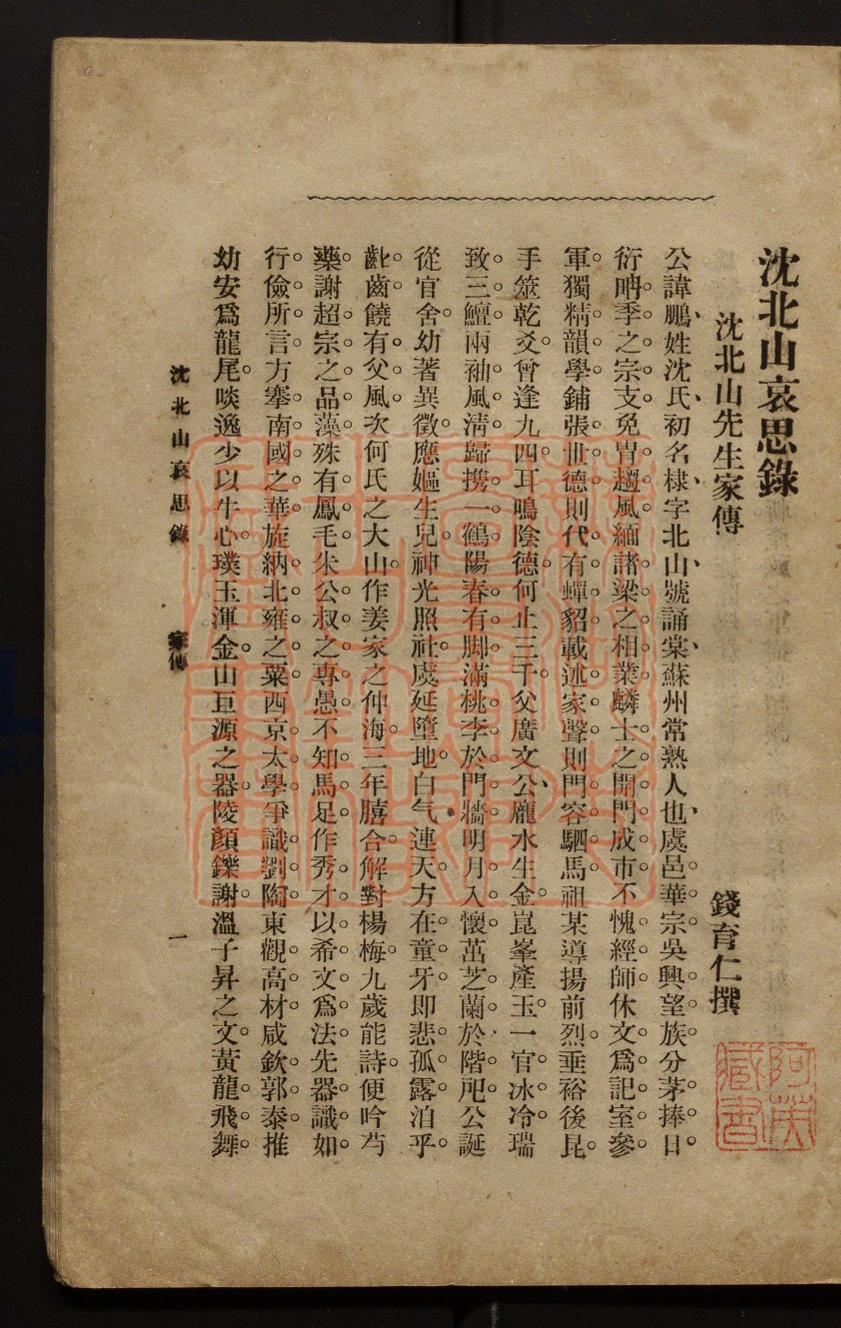 沈北山哀思錄
沈北山先生家傳
錢育仁撰
公諱鵬姓沈氏初名棣字北山號誦棠蘇州常熟人也虞邑華宗吳興望族分茅捧日
衍聃季之宗支免冑趨風緬諸梁之相業麟士之開門成市不愧經師休文爲記室參
軍獨精韻學鋪張世德則代有蟬貂載述家聲則門容駟馬祖某導揚前烈垂裕後昆
手筮乾爻曾逢九四耳鳴陰德何止三千父廣文公龐水生金崑峯產玉一官冰冷瑞
致三鱣兩袖風清歸攜一鶴陽春有脚滿桃李於門牆明月入懷茁芝蘭於階戺公誕
從官舍幼著異徵應嫗生兒神光照社虞延墮地白气連天方在童牙即悲孤露泊乎
齔齒饒有父風次何氏之大山作姜家之仲海三年膳合解對楊梅九歲能詩便吟芍
藥謝超宗之品藻殊有鳳毛朱公叔之專愚不知馬足作秀才以希文爲法先器識如
行儉所言方搴南國之華旋納北雍之粟西京太學爭識劉陶東觀高材咸欽郭泰推
幼安爲龍尾啖逸少以牛心璞玉渾金山巨源之器陵顏鑠謝溫子昇之文黃龍飛舞
沈北山哀思錄
家傳
一